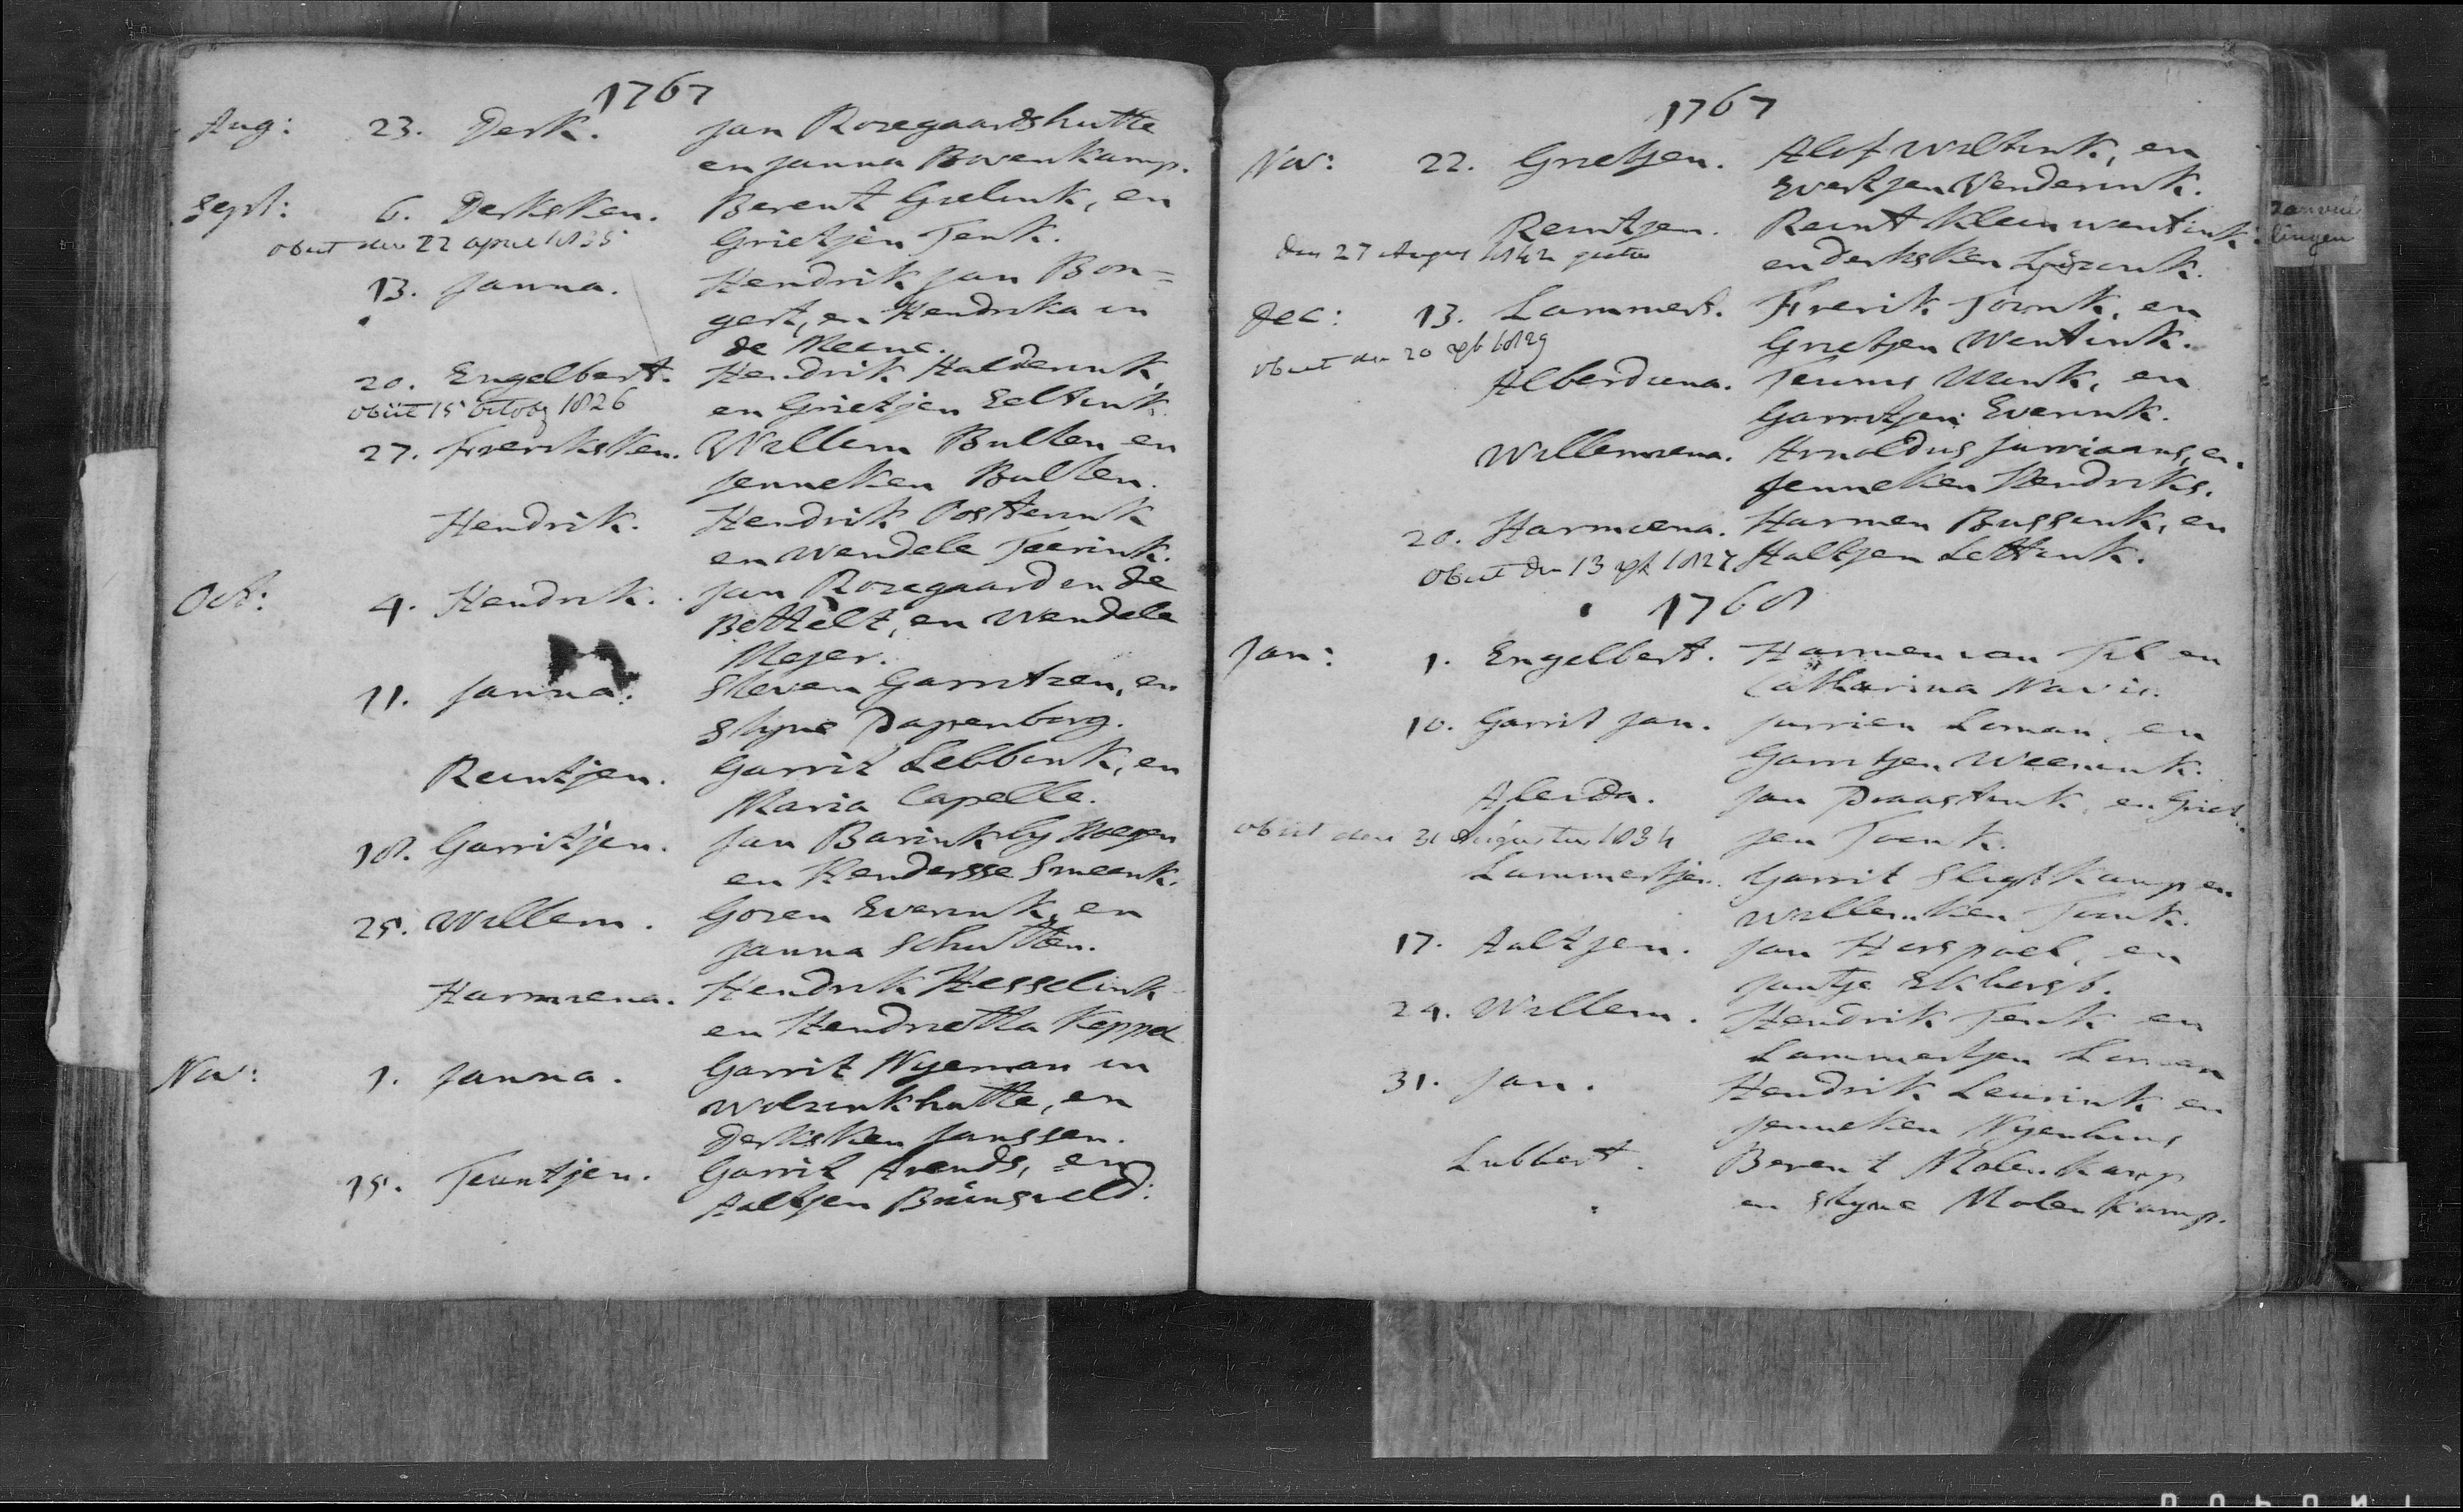 1767
Aug: 23. Derk. Jan Rozegaardshutte
en Janna Bovenkamp.
Sept: 6. Derksken. Berent Gielink, en
obiit den 22 april 1835 Grietjen Tenk.
13. Janna. Hendrik Jan Bon=
gert, en Hendrika in
de Meene.
20. Engelbert. Hendrik Halderink,
obiit 15 octobr 1826 en Grietjen Eeltink.
27. Freriksken. Willem Bulten en
Jenneken Bulten.
Hendrik. Hendrik Oosterink
en Wendele Teerink.
Oct: 4. Hendrik. Jan Rozegaard en de
Betteld, en Wendele
Mejer.
11. Janna. Steven Garritzen, en
Styne Papenborg.
Reintjen. Garrit Lebbink, en
Maria Capelle.
18. Garritjen. Jan Barink by
en Hendersse Smeenk.
25. Willem. Gozen Everink, en
Janna Schutten.
Harmiena. Hendrik Hesselink
en Hendrietta Keppel
Nov: 1. Janna. Garrit Nyeman in
Wolzinkhutte, en
Derksken Janssen.
15. Teuntjen. Garrit Arends, en
Aaltjen Brunsveld:
1767
Nov: 22. Grietjen. Alof Wiltink, en
Evertjen Venderink.
Reintjen. Reint Klein Wentink
den 27 August 1842 en Derksken
Dec: 13. Lammert. Frerik Toonk, en
obiit den 20 1829 Grietjen Wentink.
Alberdiena. Teunis Wunk, en
Garritjen Everink.
Willemiena. Arnoldus Jurriaans, en
Jenneken Hendriks.
20. Harmiena. Harmen Bussink, en
obiit den 13 1827 Haltjen Lettink.
1768
Jan: 1. Engelbert. Harmen van Til en
Catharina Navis.
10. Garrit Jan. Jurrien Loman, en
Garritjen Weenink.
Aleida. Jan Draastink, en Griet=
obiit den 31 Augustus 1834 jen Toenk.
Lammertjen. Garrit Slugtkamp en
Willemken Tunk.
17. Aaltjen. Jan Harspoel, en
Jantje Ekbergt.
24. Willem. Hendrik Tenk en
Lammertjen Loman
31. Jan. Hendrik Leurink en
Jenneken Nyenhuis
Lubbert. Berent Molenkamp
en Styne Molenkamp.